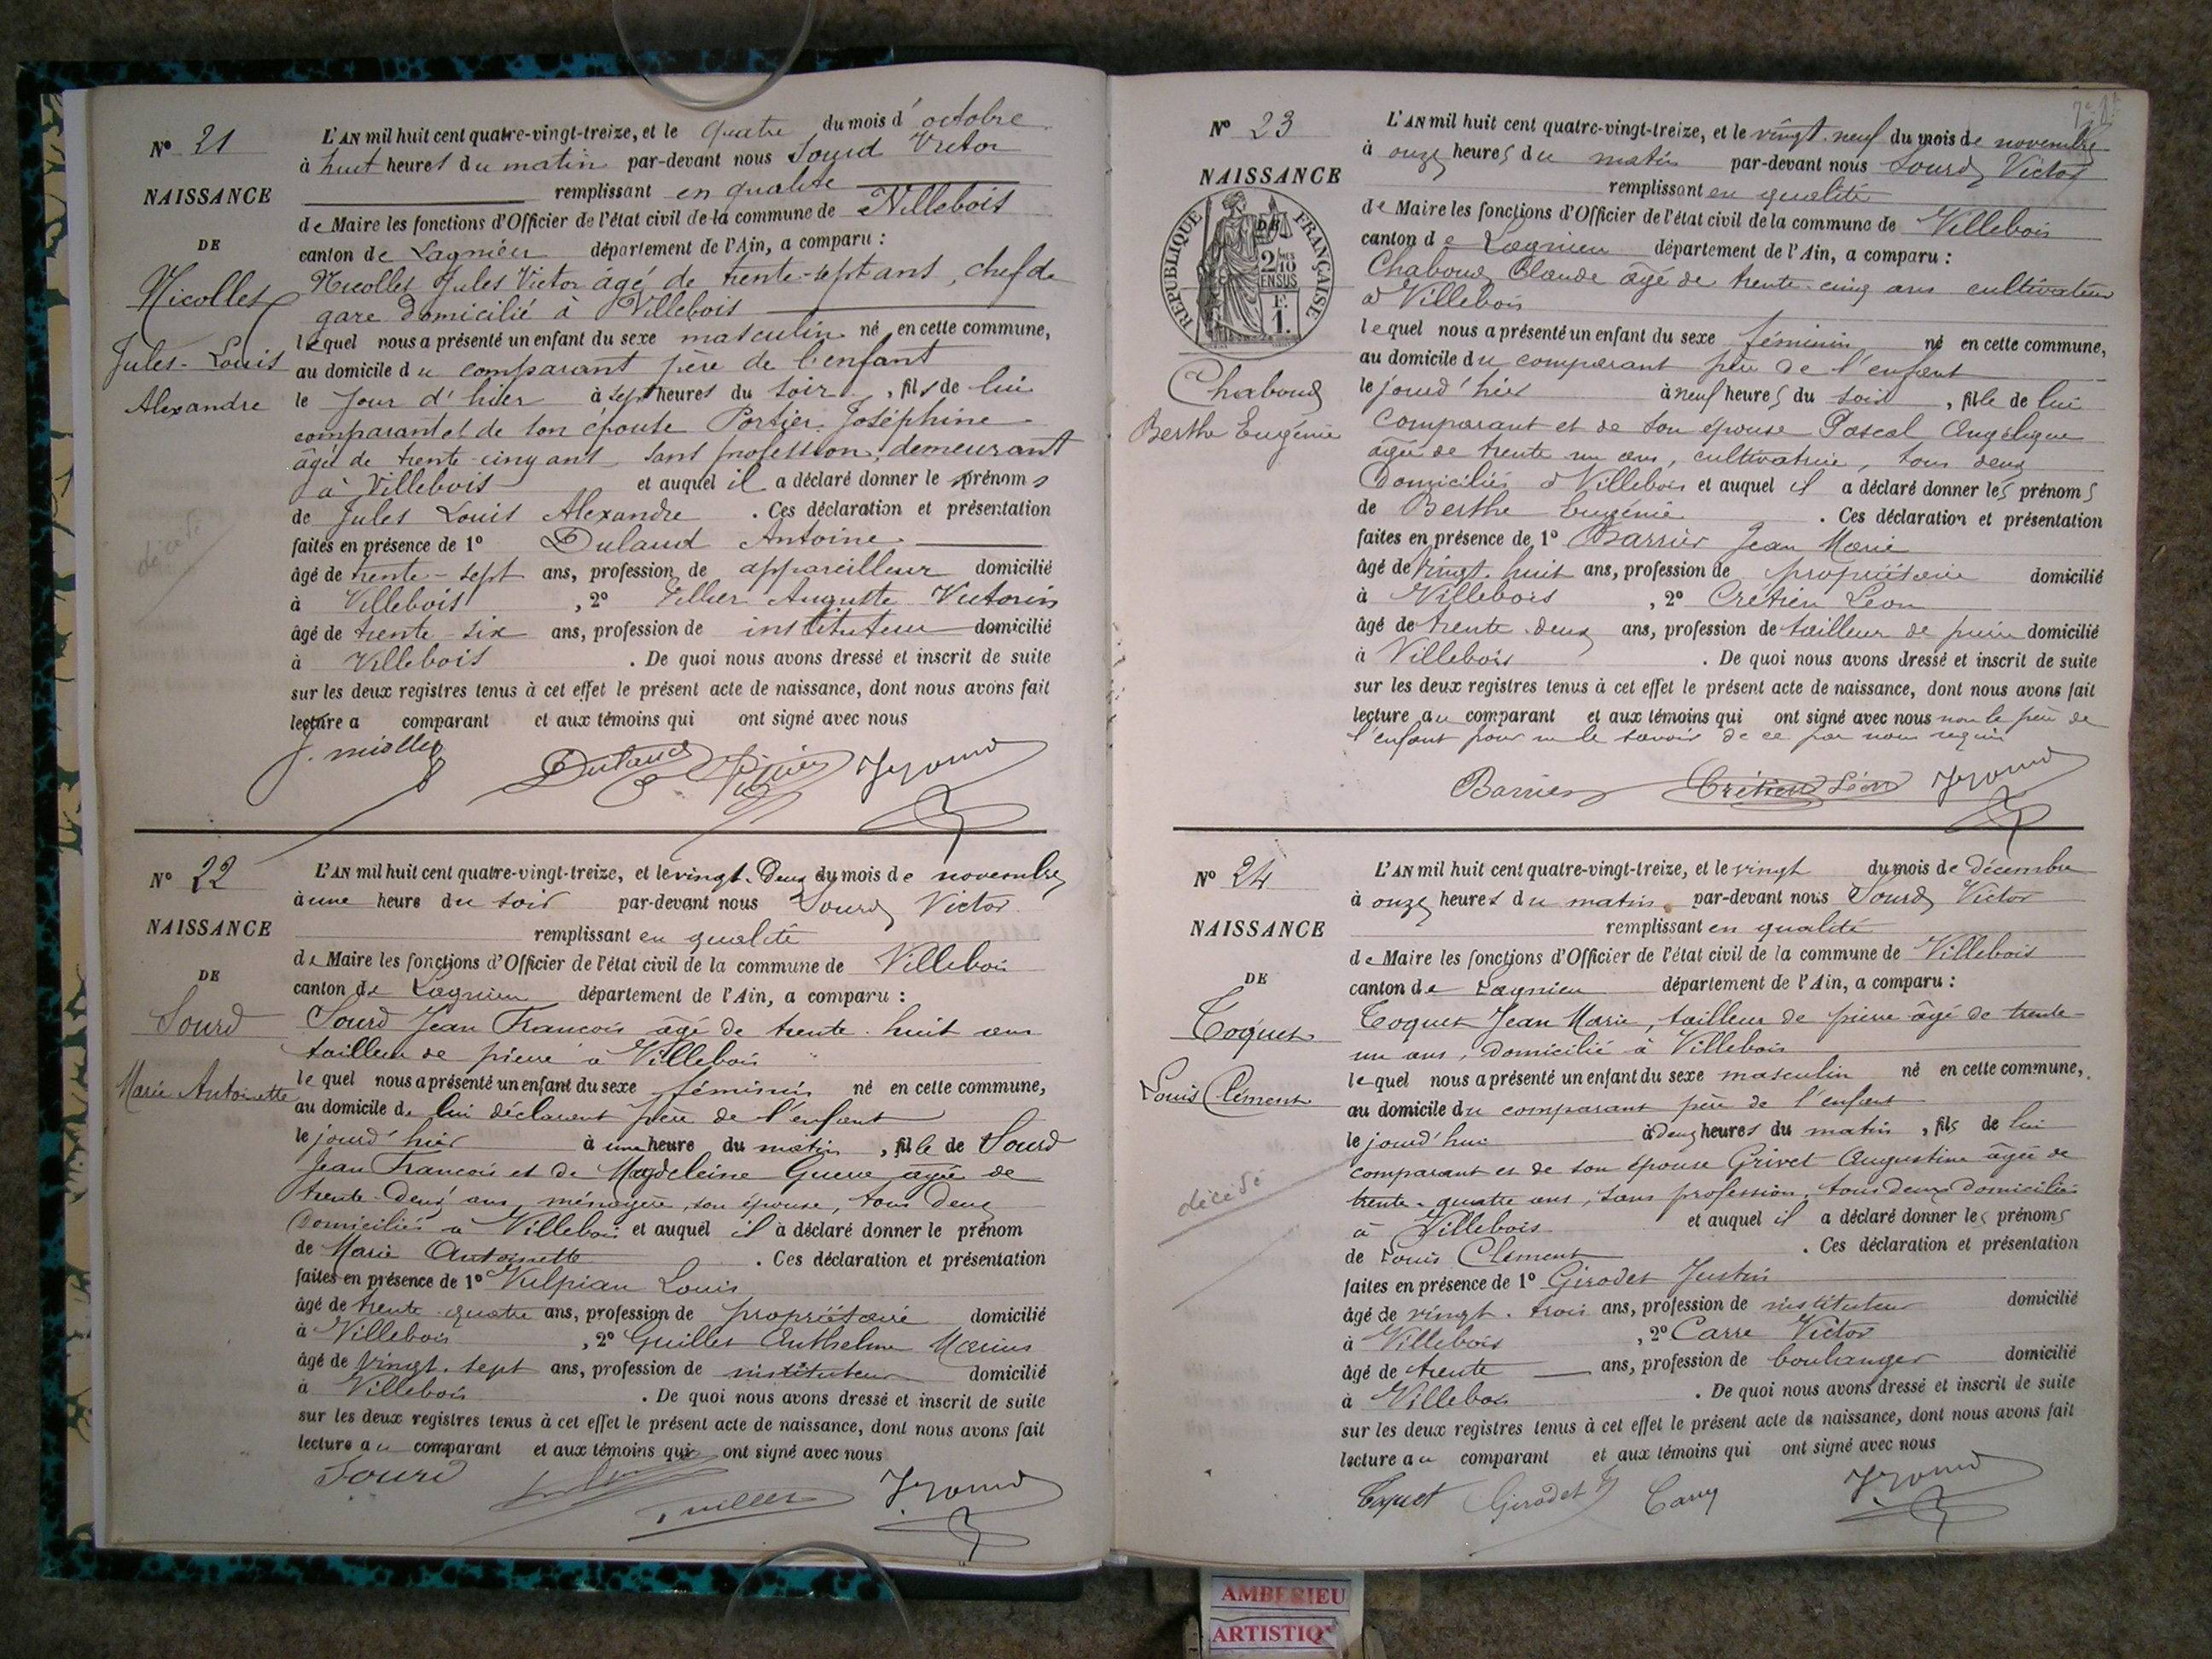 N° 21
NAISSANCE
DE
Nicollet
Jules-Louis
Alexandre
décédé
L'AN mil huit cent quatre-vingt-treize, et le quatre du mois d'octobre
à huit heures du matin par-devant nous Sourd Victor
remplissant en qualité
de Maire les fonctions d'Officier de l'état civil de la commune de Villebois
canton de Lagnieu département de l'Ain, a comparu :
Nicollet Jules Victor âgé de trente-sept ans, chef de
gare domicilié à Villebois
lequel nous a présenté un enfant du sexe masculin né en cette commune,
au domicile du comparant père de l'enfant
le jour d'hier à sept heures du soir, fils de lui
comparant et de son épouse Portier Joséphine
âgée de trente-cinq ans sans profession, demeurant
à Villebois et auquel il a déclaré donner le prénoms
de Jules Louis Alexandre. Ces déclaration et présentation
faites en présence de 1° Dulaud Antoine
âgé de trente-sept ans, profession de appareilleur domicilié
à Villebois, 2° Auguste Victorin
âgé de trente-six ans, profession de instituteur domicilié
à Villebois. De quoi nous avons dressé et inscrit de suite
sur les deux registres tenus à cet effet le présent acte de naissance, dont nous avons fait
lecture a comparant et aux témoins qui ont signé avec nous
Dulaud
N° 22
NAISSANCE
DE
Sourd
Marie Antoinette
L'AN mil huit cent quatre-vingt-treize, et le vingt-deux du mois de novembre
à une heure du soir par-devant nous Sourd Victor
remplissant en qualité
de Maire les fonctions d'Officier de l'état civil de la commune de Villebois
canton de Lagnieu département de l'Ain, a comparu :
Sourd Jean François âgé de trente-huit ans
tailleur de pierre à Villebois
lequel nous a présenté un enfant du sexe féminin né en cette commune,
au domicile de lui déclarant père de l'enfant
le jourd'hier à une heure du matin, fille de Sourd
Jean François et de Magdeleine Guerre âgée de
trente-deux ans, ménagère, son épouse, tous deux
domiciliés à Villebois et auquel il à déclaré donner le prénom
de Marie Antoinette. Ces déclaration et présentation
faites en présence de 1° Vulpian Louis
âgé de trente-quatre ans, profession de propriétaire domicilié
à Villebois, 2° Guillet Anthelme Marius
âgé de vingt-sept ans, profession de instituteur domicilié
à Villebois. De quoi nous avons dressé et inscrit de suite
sur les deux registres tenus à cet effet le présent acte de naissance, dont nous avons fait
lecture au comparant et aux témoins qui ont signé avec nous
Sourd
N° 23
NAISSANCE
DE
RÉPUBLIQUE FRANÇAISE
2/10
EN SUS
1F.
Chaboud
Berthe Eugénie
L'AN mil huit cent quatre-vingt-treize, et le vingt-neuf du mois de novembre
à onze heures du matin par-devant nous Sourd Victor
remplissant en qualité
de Maire les fonctions d'Officier de l'état civil de la commune de Villebois
canton de Lagnieu département de l'Ain, a comparu :
Chaboud Claude âgé de trente-cinq ans cultivateur
à Villebois
lequel nous a présenté un enfant du sexe féminin né en cette commune,
au domicile du comparant père de l'enfant
le jourd'hier à neuf heures du soir, fille de lui
comparant et de son épouse Pascal Angélique
âgée de trente un ans, cultivatrice, tous deux
domiciliés à Villebois et auquel il a déclaré donner les prénoms
de Berthe Eugénie. Ces déclaration et présentation
faites en présence de 1° Barrier Jean Marie
âgé de vingt-huit ans, profession de propriétaire domicilié
à Villebois, 2° Crétien Léon
âgé de trente-deux ans, profession de tailleur de pierre domicilié
à Villebois. De quoi nous avons dressé et inscrit de suite
sur les deux registres tenus à cet effet le présent acte de naissance, dont nous avons fait
lecture au comparant et aux témoins qui ont signé avec nous non le père de
l'enfant pour ne le savoir de ce par nous requis
Barrier Crétien Léon
N° 24
NAISSANCE
DE
Coquet
Louis Clément
décédé
L'AN mil huit cent quatre-vingt-treize, et le vingt du mois de décembre
à onze heures du matin par-devant nous Sourd Victor
remplissant en qualité
de Maire les fonctions d'Officier de l'état civil de la commune de Villebois
canton de Lagnieu département de l'Ain, a comparu :
Coquet Jean Marie, tailleur de pierre âgé de trente-
un ans, domicilié à Villebois
lequel nous a présenté un enfant du sexe masculin né en cette commune,
au domicile du comparant père de l'enfant
le jourd'hui à deux heures du matin, fils de lui
comparant et de son épouse Grivet Augustine âgée de
trente-quatre ans, sans profession, tous deux domiciliés
à Villebois et auquel il a déclaré donner les prénoms
de Louis Clément. Ces déclaration et présentation
faites en présence de 1° Girodet Justin
âgé de vingt-trois ans, profession de instituteur domicilié
à Villebois, 2° Carre Victor
âgé de trente ans, profession de boulanger domicilié
à Villebois. De quoi nous avons dressé et inscrit de suite
sur les deux registres tenus à cet effet le présent acte de naissance, dont nous avons fait
lecture au comparant et aux témoins qui ont signé avec nous
Coquet Girodet
AMBERIEU
ARTISTIQ